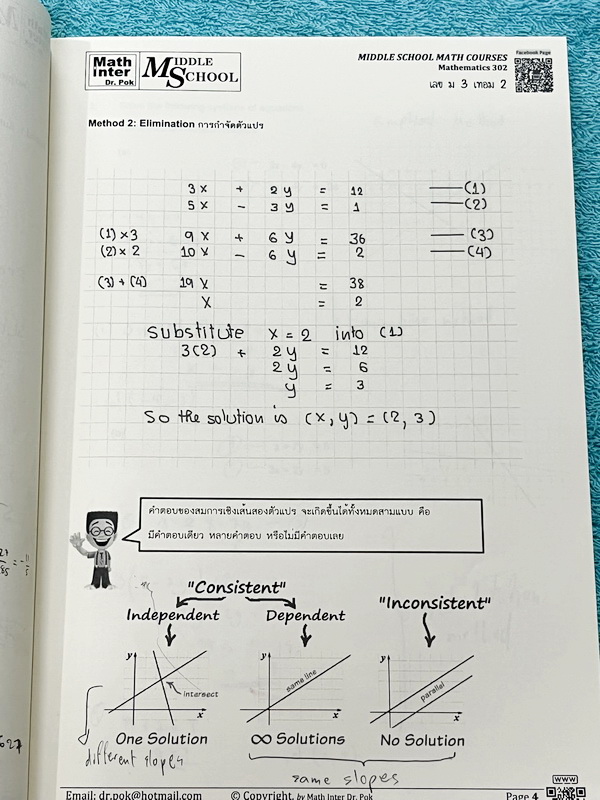 Math Inter Dr. Pok
MIDDLE SCHOOL
MIDDLE SCHOOL MATH COURSES
Mathematics 302
Facebook Page
เลข ม 3 เทอม 2
Method 2: Elimination การกำจัดตัวแปร
3x + 2y = 12 ——(1)
5x - 3y = 1 ——(2)
(1)×3 9x + 6y = 36 ——(3)
(2)×2 10x - 6y = 2 ——(4)
(3)+(4) 19x = 38
x = 2
substitute x = 2 into (1)
3(2) + 2y = 12
2y = 6
y = 3
So the solution is (x,y) = (2,3)
คำตอบของสมการเชิงเส้นสองตัวแปร จะเกิดขึ้นได้ทั้งหมดสามแบบ คือ
มีคำตอบเดียว หลายคำตอบ หรือไม่มีคำตอบเลย
"Consistent"
"Inconsistent"
Independent
Dependent
y
x
intersect
y
x
same line
y
x
parallel
One Solution
∞ Solutions
No Solution
different slopes
same slopes
Email: dr.pok@hotmail.com
© Copyright, by Math Inter Dr. Pok
Page 4
WWW